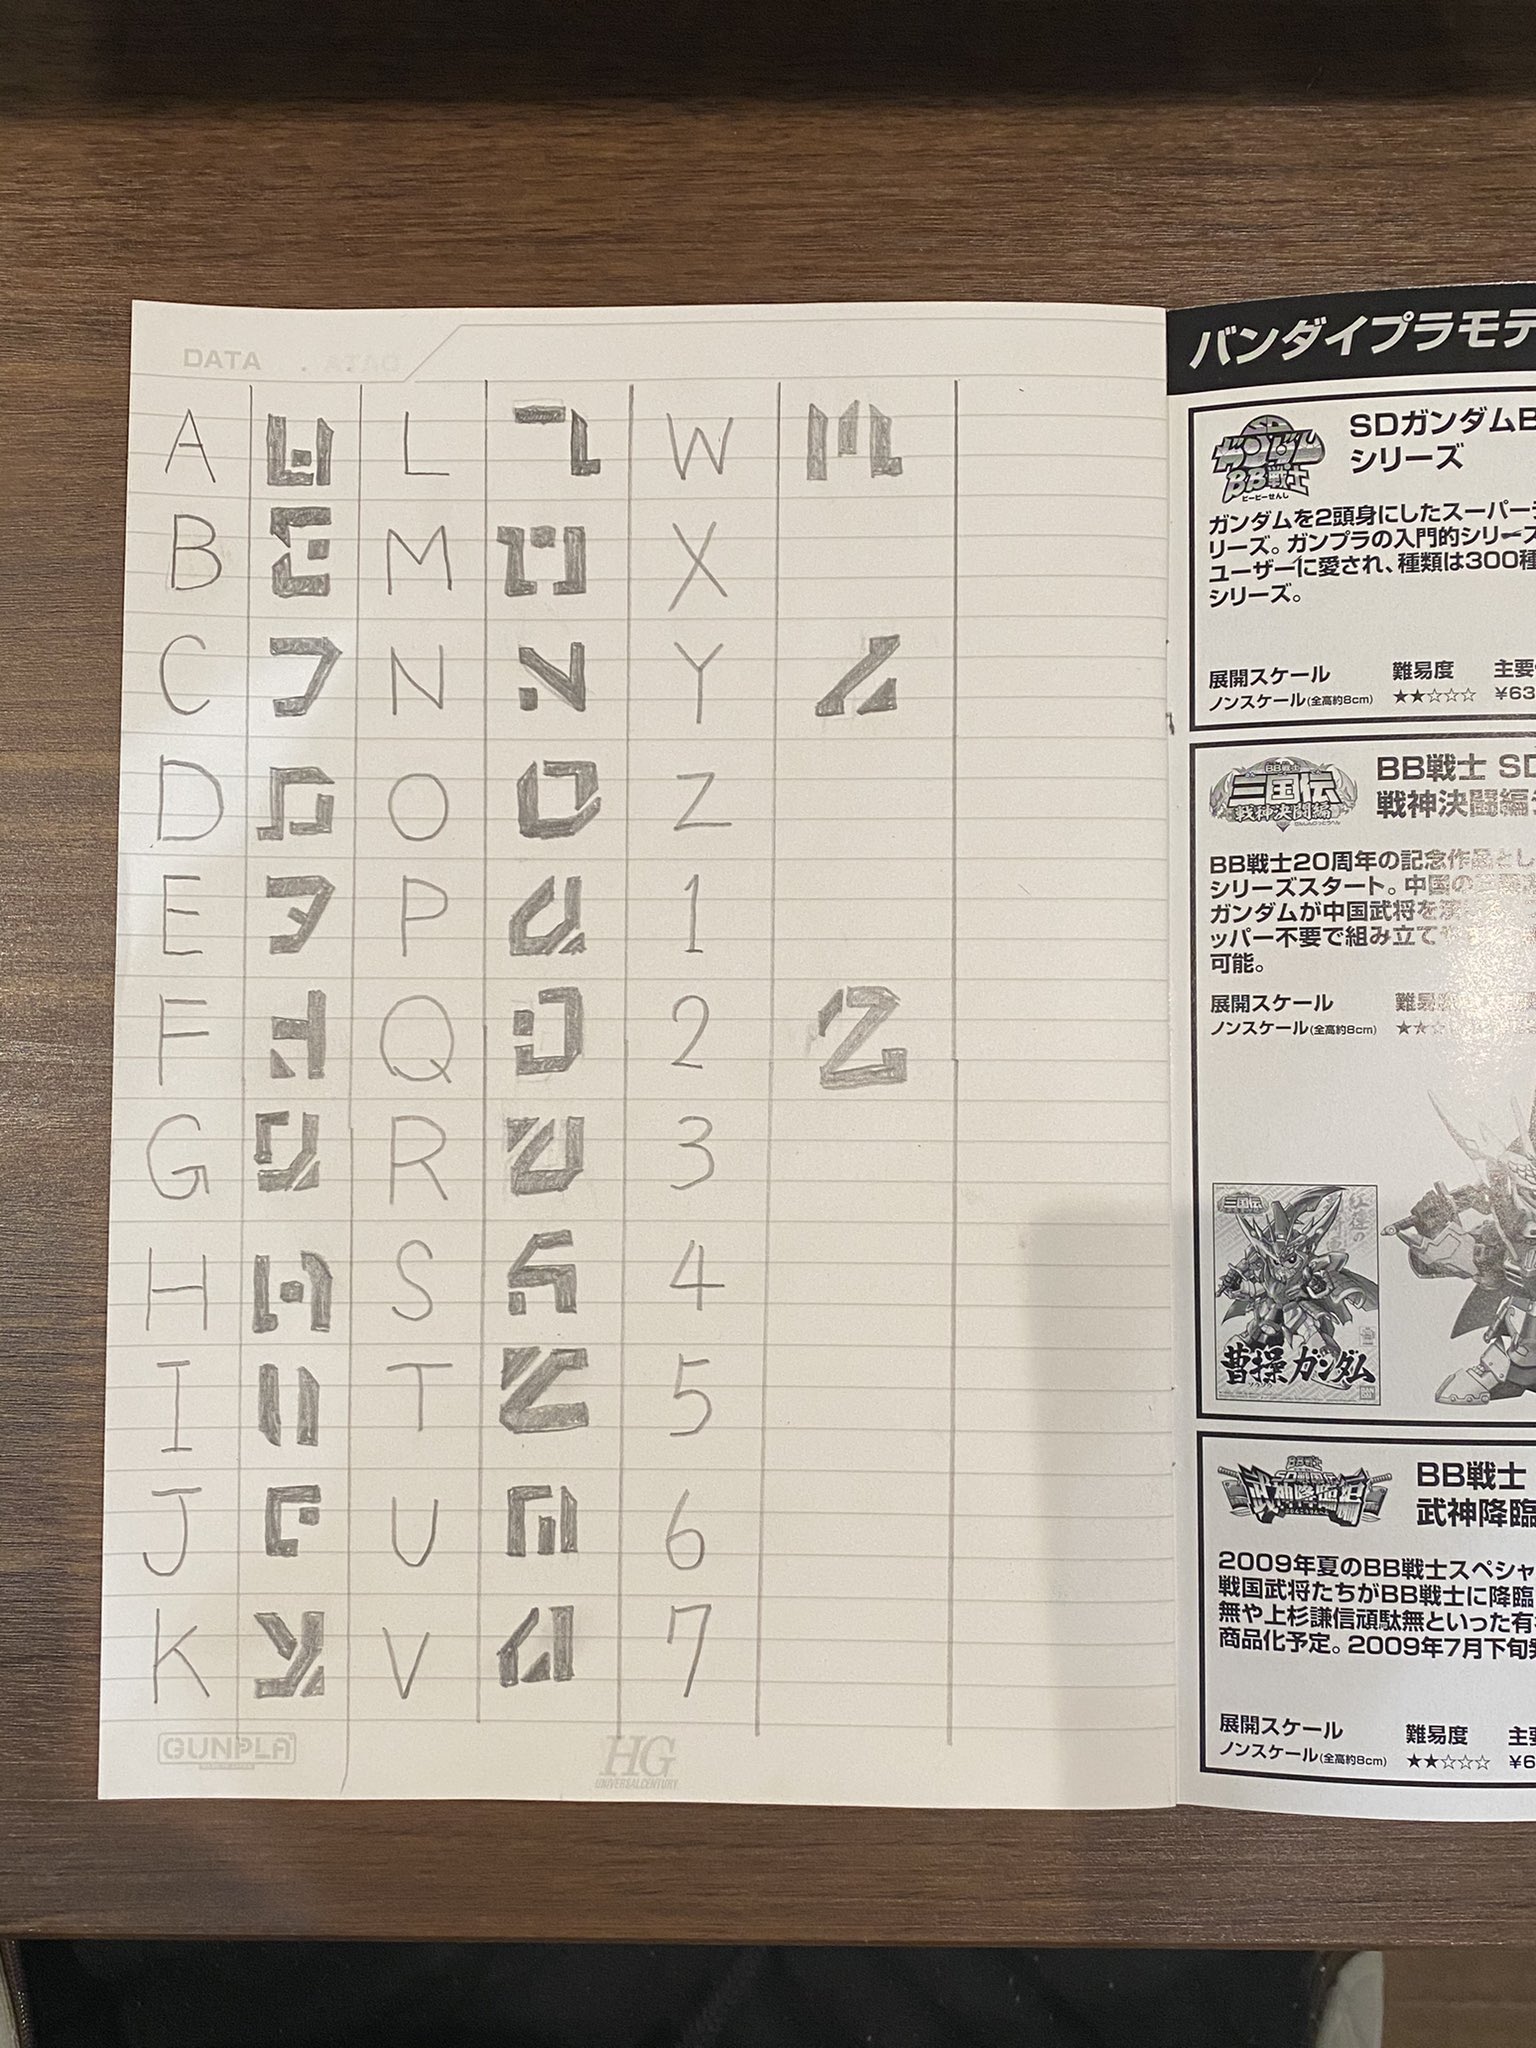 DATA
A L W
B M X
C N Y
D O Z
E P 1
F Q 2
G R 3
H S 4
I T 5
J U 6
K V 7
GUNPLA
HG
UNIVERSAL CENTURY
バンダイプラモデ
SD
ガンダム
BB戦士
ビービーせんし
SDガンダムB
シリーズ
ガンダムを2頭身にしたスーパー
リーズ。ガンプラの入門的シリーズ
ユーザーに愛され、種類は300種
シリーズ。
展開スケール 難易度 主要
ノンスケール(全高約8cm) ★★☆☆☆ ¥63
BB戦士
三国伝
戦神決闘編
BB戦士 SD
戦神決闘編
BB戦士20周年の記念作品とし
シリーズスタート。中国の
ガンダムが中国武将を演
ッパー不要で組み立て
可能。
展開スケール 難易
ノンスケール(全高約8cm) ★★☆
三国伝
曹操ガンダム
BB戦士
武神降臨編
BB戦士
武神降臨
2009年夏のBB戦士スペシャ
戦国武将たちがBB戦士に降臨
無や上杉謙信頑駄無といった有
商品化予定。2009年7月下旬
展開スケール 難易度 主要
ノンスケール(全高約8cm) ★★☆☆☆ ¥6